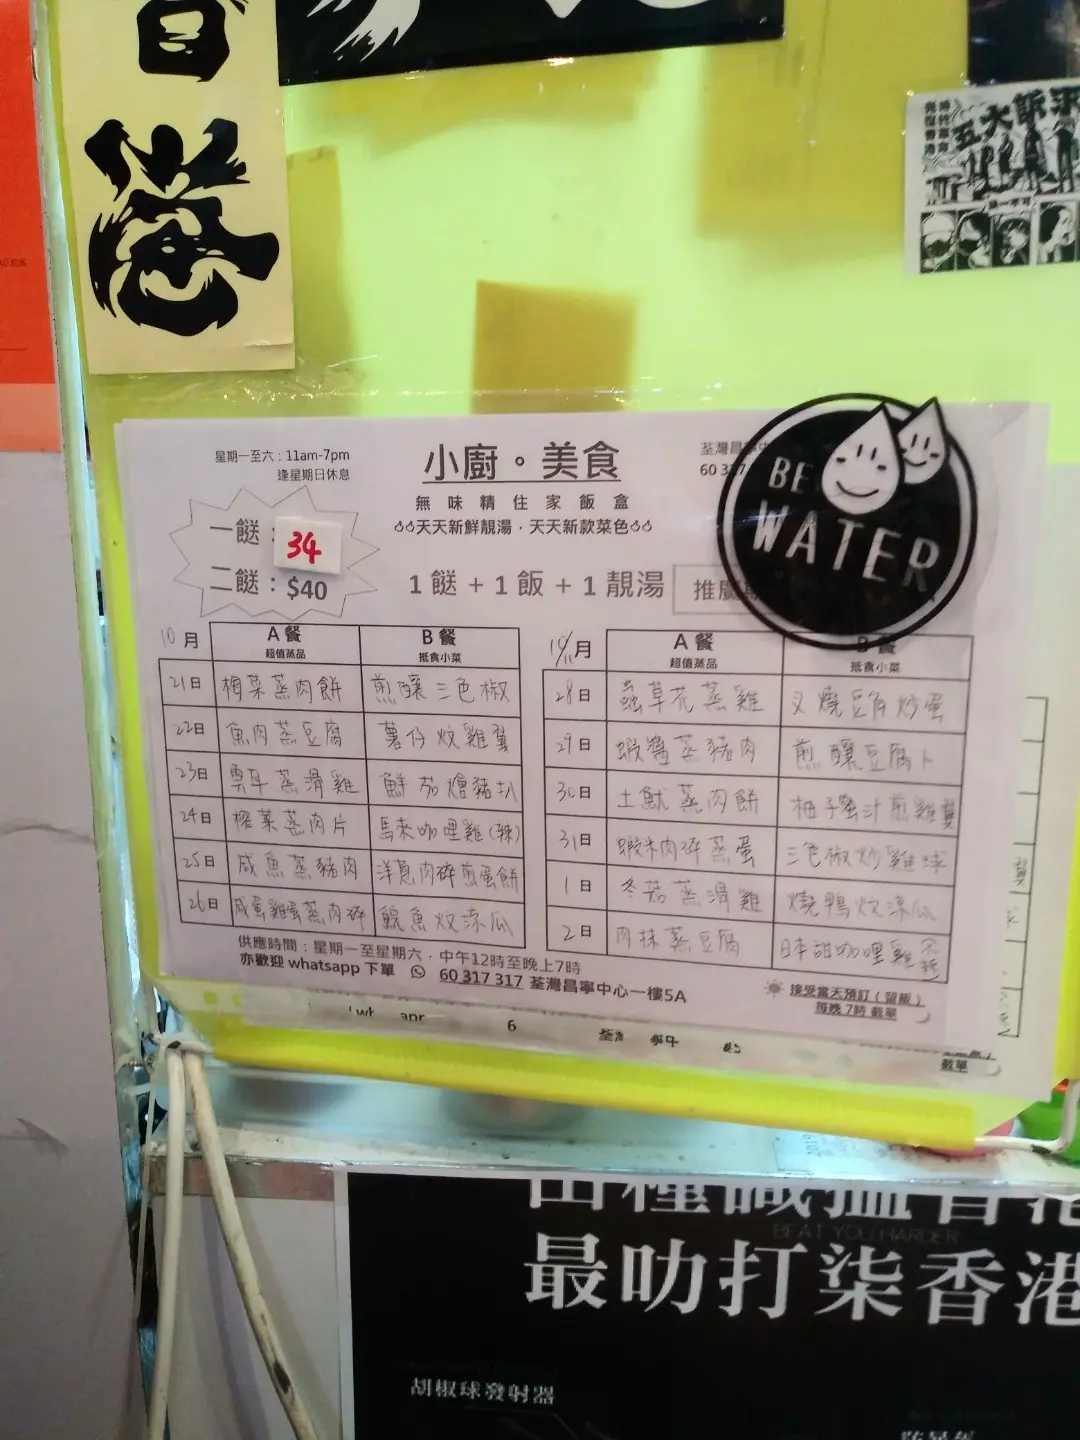 香
港
五大訴求
星期一至六：11am-7pm
逢星期日休息
小廚。美食
無味精住家飯盒
天天新鮮靚湯，天天新款菜色
荃灣昌寧中
60 317
BE
WATER
一餸：34
二餸：$40
1 餸 + 1 飯 + 1 靚湯
推廣
10月 A 餐 B 餐
超值蒸品 抵食小菜
21日 梅菜蒸肉餅 煎釀三色椒
22日 魚肉蒸豆腐 薯仔炆雞翼
23日 雲耳蒸滑雞 鮮茄燴豬扒
24日 榨菜蒸肉片 馬來咖哩雞(辣)
25日 咸魚蒸豬肉 洋葱肉碎煎蛋餅
26日 咸蛋雞蛋蒸肉碎 鯇魚炆涼瓜
10/11月 A 餐 B 餐
超值蒸品 抵食小菜
28日 蟲草花蒸雞 叉燒豆角炒蛋
29日 蝦醬蒸豬肉 煎釀豆腐卜
30日 土魷蒸肉餅 柚子蜜汁煎雞翼
31日 蝦米肉碎蒸蛋 三色椒炒雞球
1日 冬菇蒸滑雞 燒鴨炆涼瓜
2日 肉抹蒸豆腐 日本甜咖哩雞不辣
供應時間：星期一至星期六，中午12時至晚上7時
亦歡迎 whatsapp 下單 60 317 317 荃灣昌寧中心一樓5A
接受當天預訂（留飯）
每晚 7時 截單
截單
BEAT YOU HARDER
最叻打柒香港
胡椒球發射器